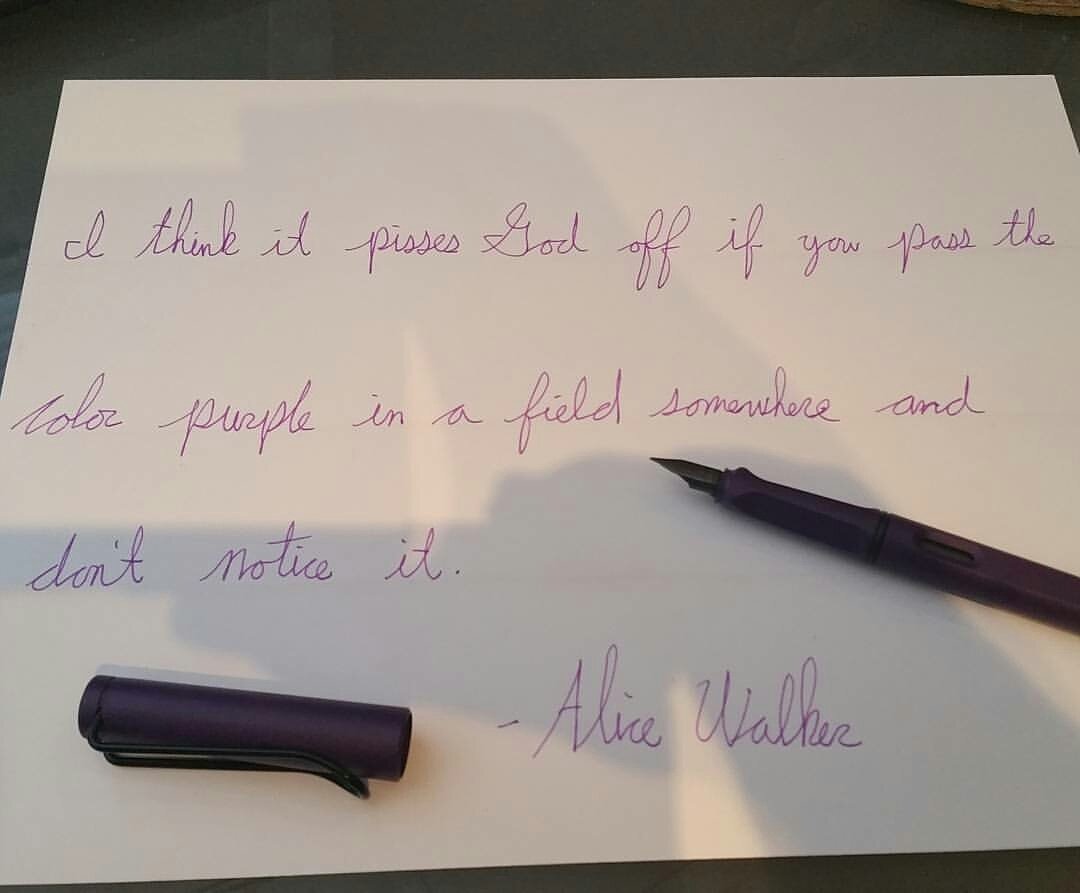 I think it pisses God off if you pass the
color purple in a field somewhere and
don't notice it.
- Alice Walker